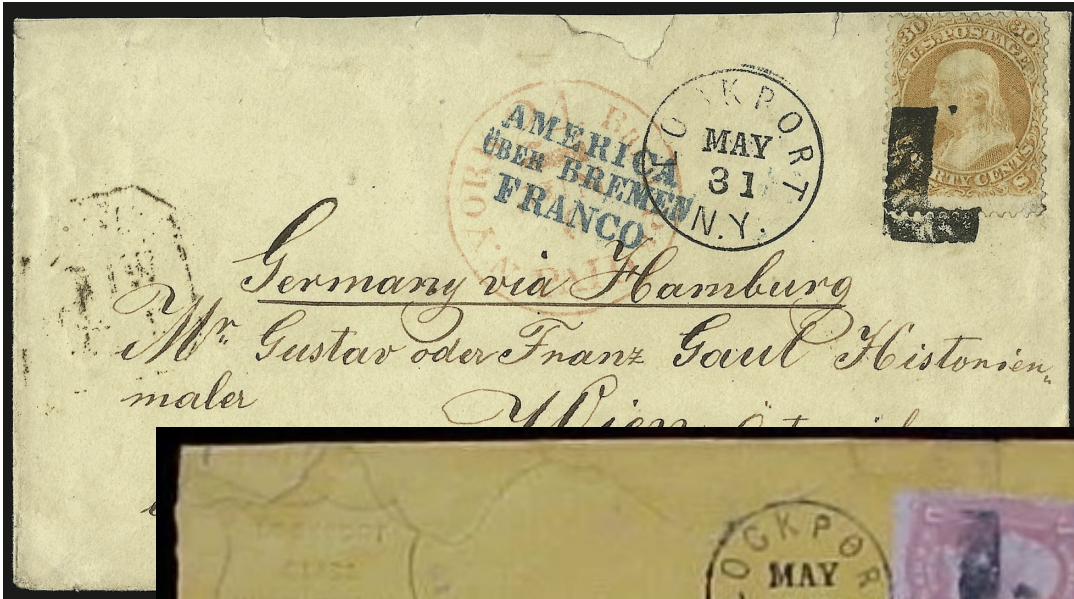 30 30
U.S. POSTAGE
CENTS
LOCKPORT
MAY
31
N.Y.
AMERICA
ÜBER BREMEN
FRANCO
YORK
PAID
Germany via Hamburg
Mr Gustav oder Franz Gaul Historien„
maler
Wien
LOCKPOR
MAY